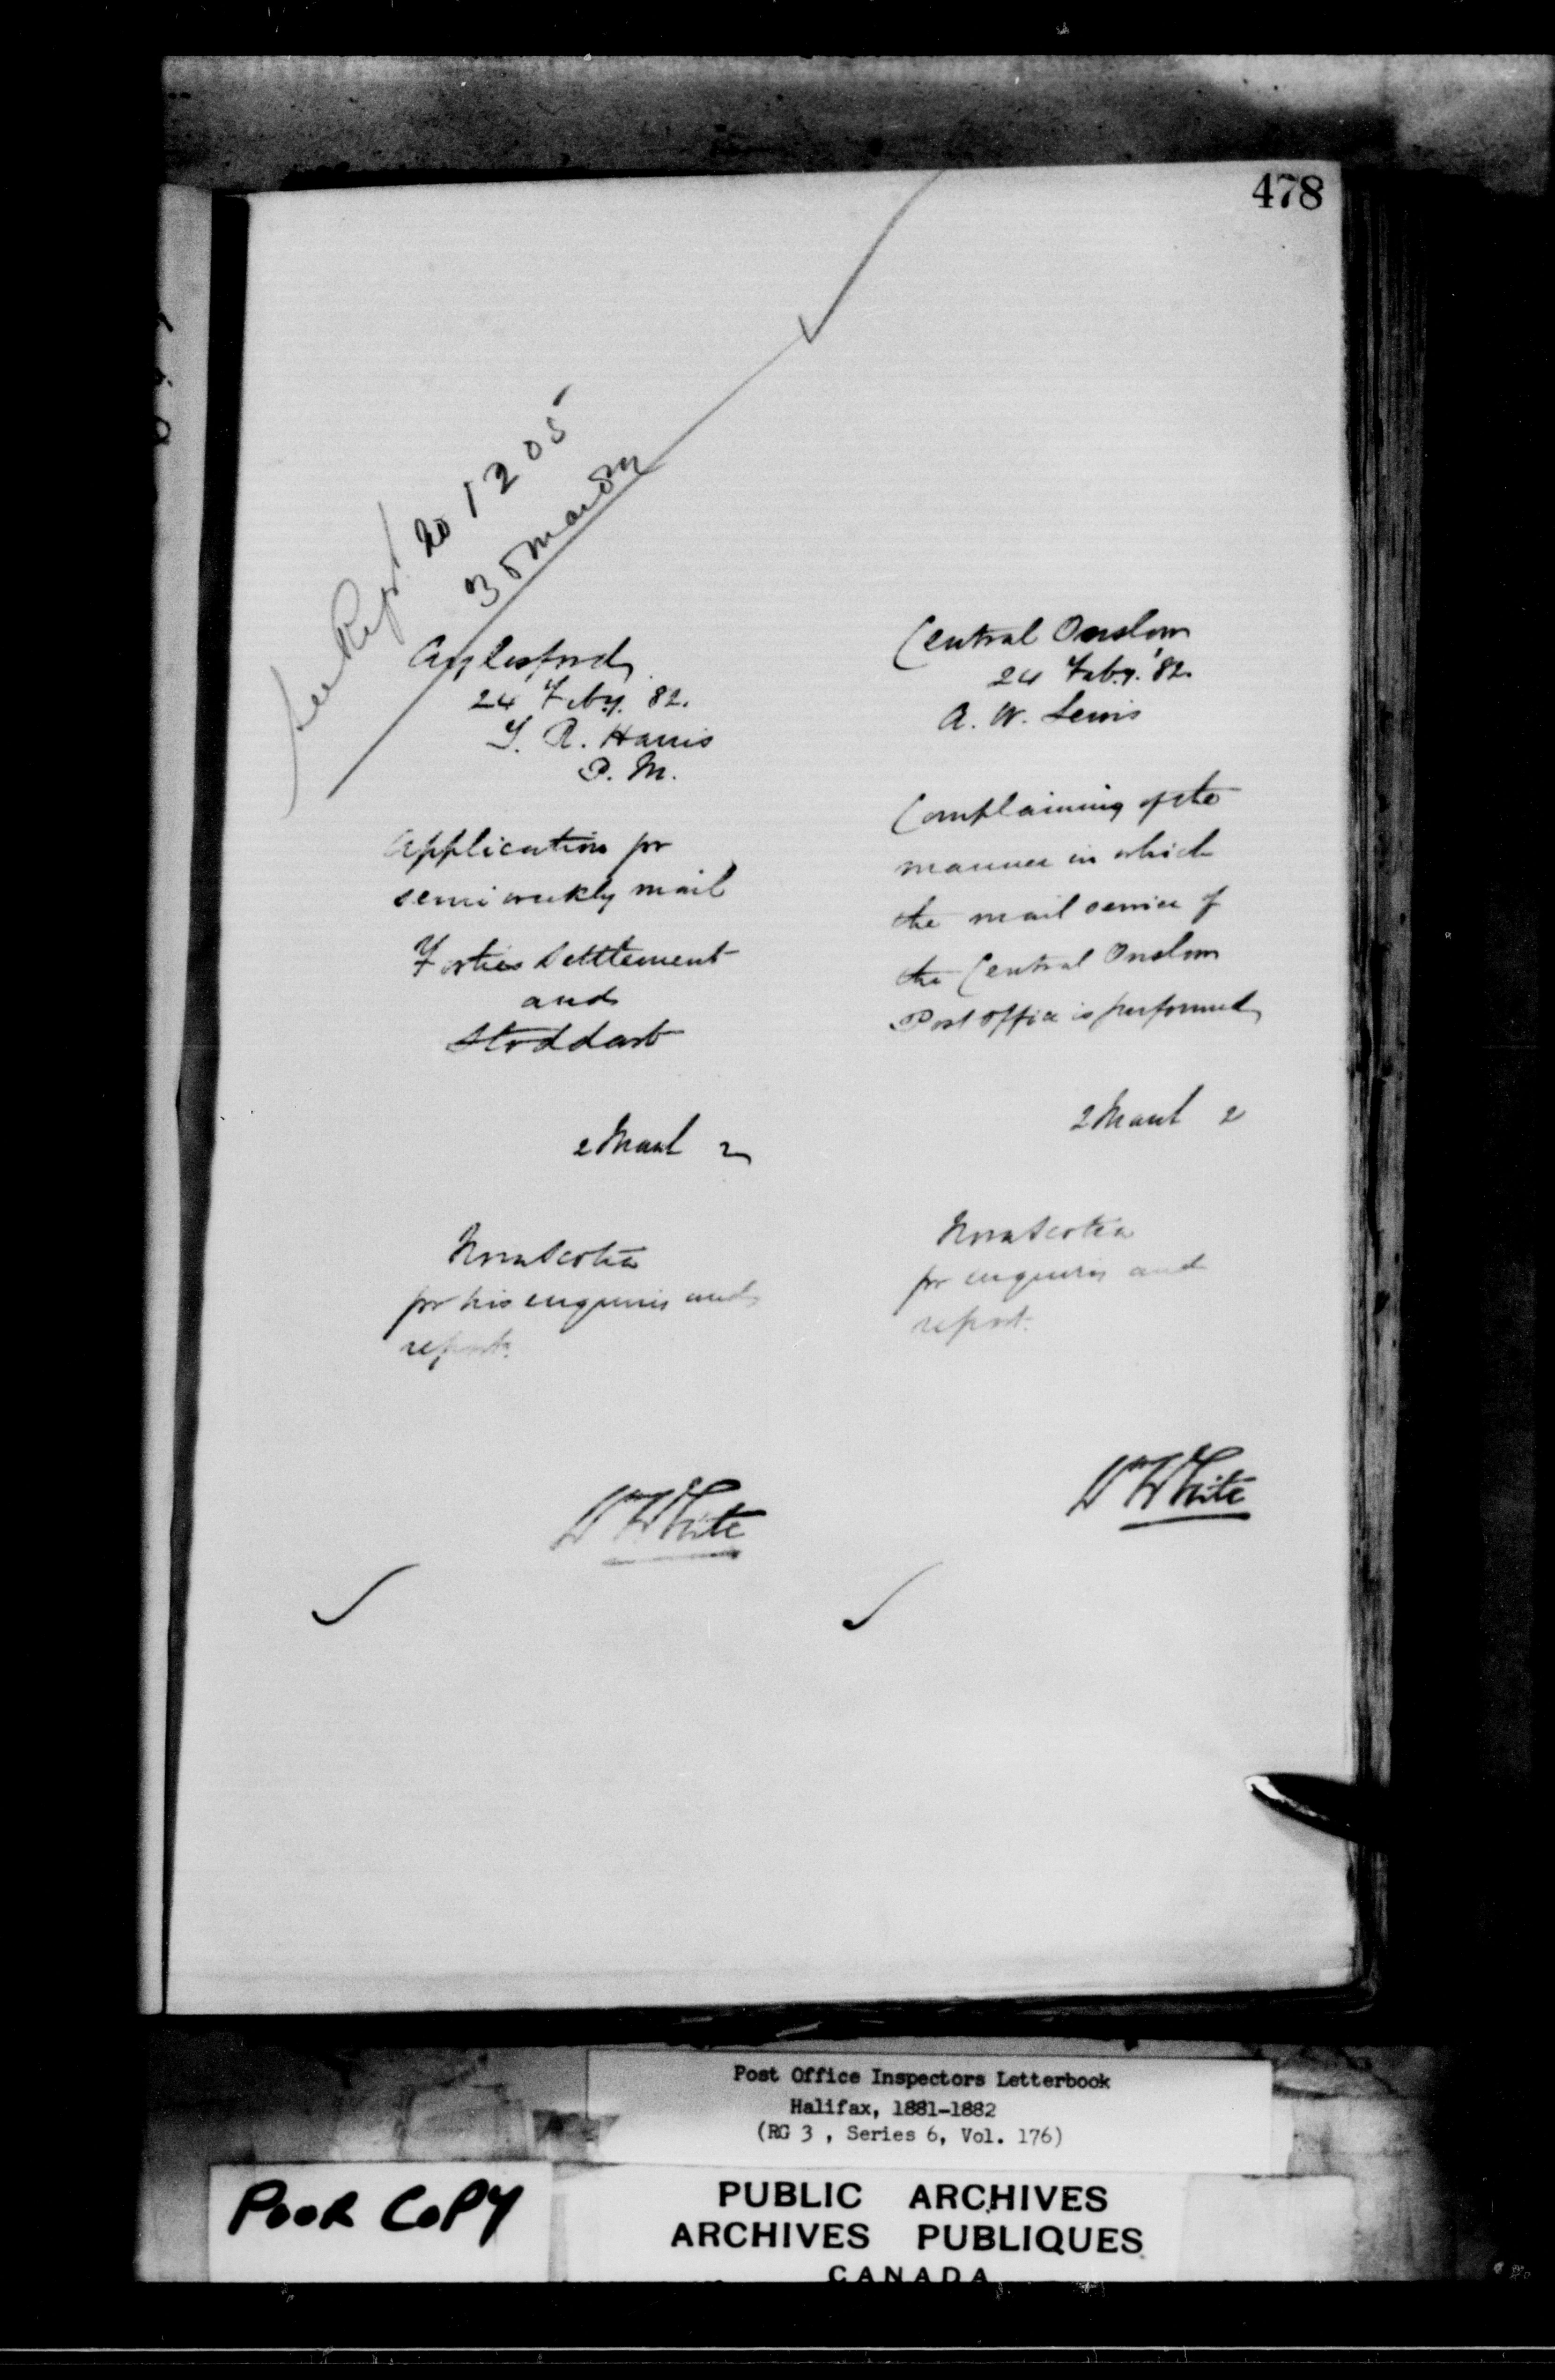 478
See Rept. No 1205
Aylesford,
24 Feby. 82.
T. R. Harris
P. M.
Application for
semi weekly mail
Forties Settlement
and
Stoddart
2 March 2
Nova Scotia
for his enquiries and
report.
Wm White
Central Onslow
24 Feby. '82.
A. W. Lewis
Complaining of the
manner in which
the mail service of
the Central Onslow
Post Office is performed,
2 March 2
Nova Scotia
for enquiries and
report.
Wm White
Post Office Inspectors Letterbook
Halifax, 1881-1882
(RG 3 , Series 6, Vol. 176)
POOR COPY
PUBLIC ARCHIVES
ARCHIVES PUBLIQUES
CANADA